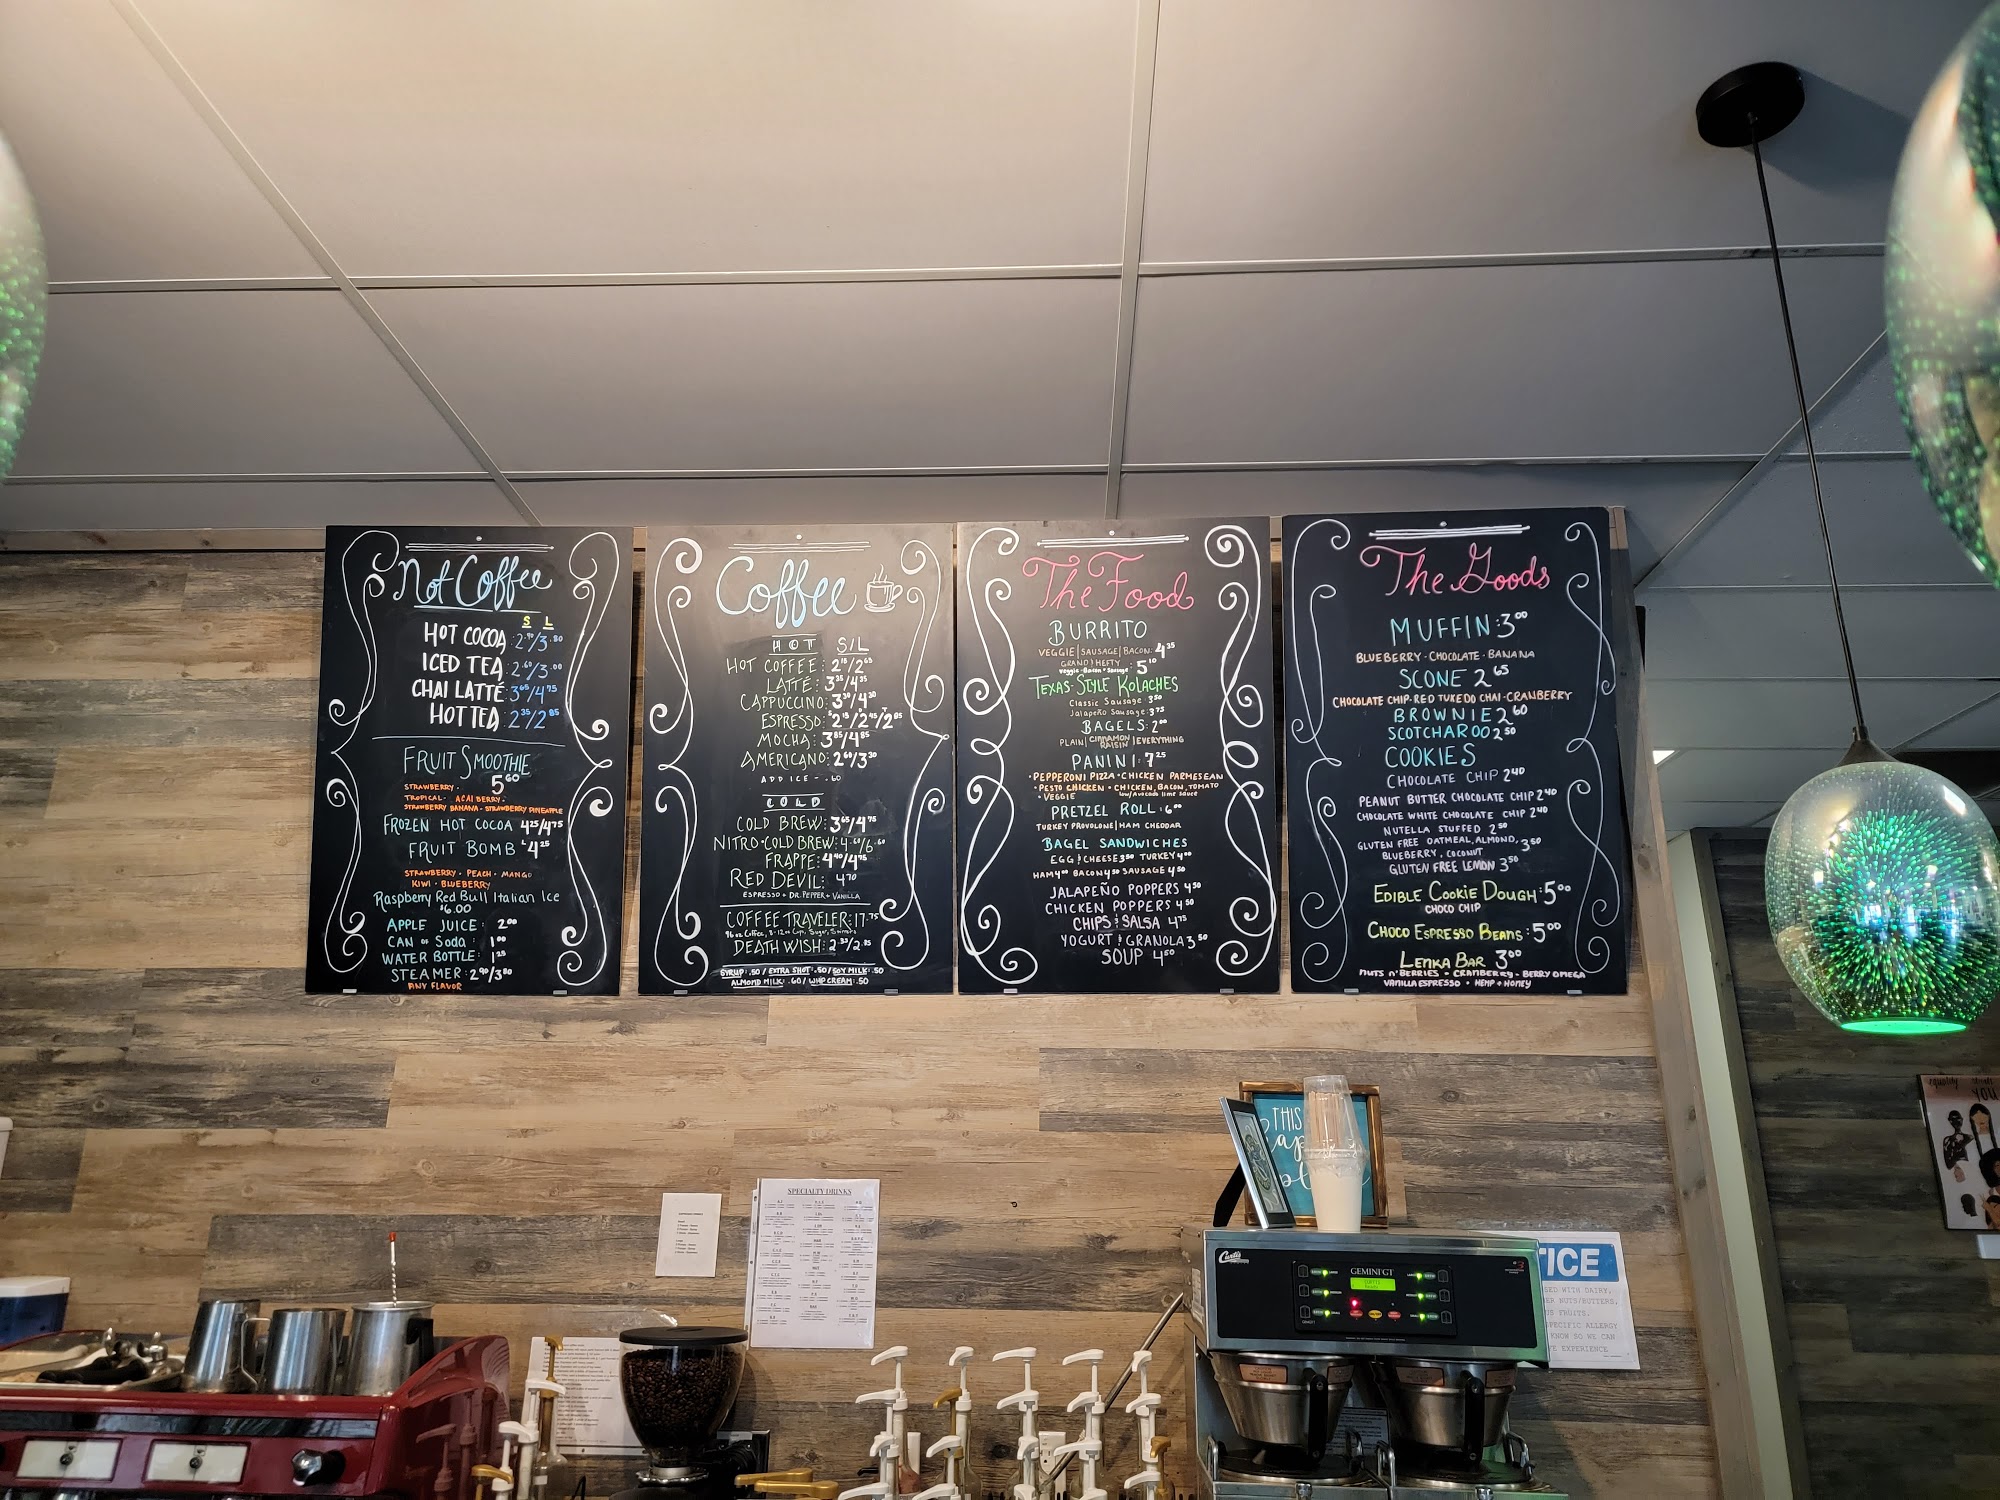 Not Coffee
S L
HOT COCOA: 2.90/3.80
ICED TEA: 2.60/3.00
CHAI LATTÉ: 3.65/4.75
HOT TEA: 2.35/2.85
FRUIT SMOOTHIE
5.60
STRAWBERRY •
TROPICAL • ACAI BERRY •
STRAWBERRY BANANA • STRAWBERRY PINEAPPLE
FROZEN HOT COCOA 4.25/4.75
FRUIT BOMB 4.25
STRAWBERRY • PEACH • MANGO
KIWI • BLUEBERRY
Raspberry Red Bull Italian Ice
$6.00
APPLE JUICE: 2.00
CAN OF Soda: 1.00
WATER BOTTLE: 1.25
STEAMER: 2.90/3.80
ANY FLAVOR
Coffee
HOT S/L
HOT COFFEE: 2.15/2.65
LATTÉ: 3.35/4.35
CAPPUCCINO: 3.30/4.30
ESPRESSO: 2.15/2.45/2.85
MOCHA: 3.85/4.85
AMERICANO: 2.60/3.30
ADD ICE - .60
COLD
COLD BREW: 3.65/4.75
NITRO-COLD BREW: 4.60/6.60
FRAPPE: 4.40/4.95
RED DEVIL: 4.70
ESPRESSO + DR. PEPPER + VANILLA
COFFEE TRAVELER: 17.75
96 oz Coffee, 8-12oz Cups, Sugar,
DEATH WISH: 2.35/2.85
SYRUP: .50 / EXTRA SHOT: .50 / SOY MILK: .50
ALMOND MILK: .60 / WHIP CREAM: .50
The Food
BURRITO
VEGGIE | SAUSAGE | BACON: 4.35
GRAND | HEFTY
Veggie • Bacon • Sausage : 5.10
TEXAS-STYLE KOLACHES
Classic Sausage: 3.50
Jalapeño Sausage: 3.75
BAGELS: 2.00
PLAIN | CINNAMON RAISIN | EVERYTHING
PANINI: 7.25
• PEPPERONI PIZZA • CHICKEN PARMESEAN
• PESTO CHICKEN • CHICKEN, BACON, TOMATO
• VEGGIE w/Avocado lime sauce
PRETZEL ROLL: 6.00
TURKEY PROVOLONE | HAM CHEDDAR
BAGEL SANDWICHES
EGG & CHEESE 3.50 TURKEY 4.00
HAM 4.00 BACON 4.50 SAUSAGE 4.50
JALAPEÑO POPPERS 4.50
CHICKEN POPPERS 4.50
CHIPS & SALSA 4.75
YOGURT & GRANOLA 3.50
SOUP 4.50
The Goods
MUFFIN: 3.00
BLUEBERRY • CHOCOLATE • BANANA
SCONE 2.65
CHOCOLATE CHIP • RED TUXEDO CHAI • CRANBERRY
BROWNIE 2.60
SCOTCHAROO 2.50
COOKIES
CHOCOLATE CHIP 2.40
PEANUT BUTTER CHOCOLATE CHIP 2.40
CHOCOLATE WHITE CHOCOLATE CHIP 2.40
NUTELLA STUFFED 2.50
GLUTEN FREE OATMEAL, ALMOND, 3.50
BLUEBERRY, COCONUT
GLUTEN FREE LEMON 3.50
EDIBLE COOKIE DOUGH: 5.00
CHOCO CHIP
CHOCO ESPRESSO BEANS: 5.00
LENKA BAR 3.00
NUTS n' BERRIES • CRANBERRY • BERRY OMEGA
VANILLA ESPRESSO • HEMP + HONEY
SPECIALTY DRINKS
THIS
Curtis
GEMINI GT
TICE
SED WITH DAIRY,
ER NUTS/BUTTERS,
FRUITS.
SPECIFIC ALLERGY
KNOW SO WE CAN
EXPERIENCE
equality
YOU